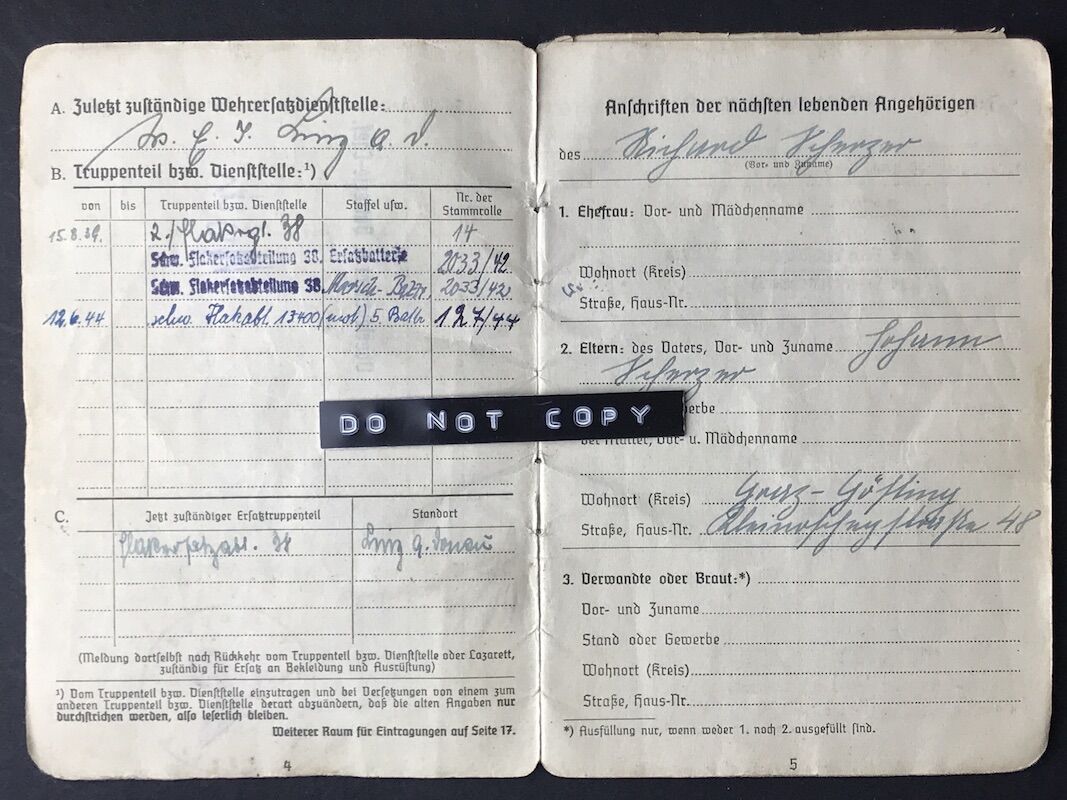 A. Zuletzt zuständige Wehrersatzdienststelle:
Linz a. d.
B. Truppenteil bzw. Dienststelle:¹)
von bis Truppenteil bzw. Dienststelle Staffel usw. Nr. der Stammrolle
15.8.39. 2./Flakrgt. 38 14
Schw. Flakersatzabteilung 38. Ersatzbatterie 2033/42
Schw. Flakersatzabteilung 38. Marsch- 2033/42
12.6.44 schw. Flakabt. 13400 (mot) 5. Battr 127/44
C.
Jetzt zuständiger Ersatztruppenteil Standort
Flakersatzabt. 38 Linz a. Donau
(Meldung dortselbst nach Rückkehr vom Truppenteil bzw. Dienststelle oder Lazarett,
zuständig für Ersatz an Bekleidung und Ausrüstung)
¹) Vom Truppenteil bzw. Dienststelle einzutragen und bei Versetzungen von einem zum
anderen Truppenteil bzw. Dienststelle derart abzuändern, daß die alten Angaben nur
durchstrichen werden, also leserlich bleiben.
Weiterer Raum für Eintragungen auf Seite 17.
4
DO NOT COPY
Anschriften der nächsten lebenden Angehörigen
des Richard Scherzer
(Vor- und Zuname)
1. Ehefrau: Vor- und Mädchenname
Wohnort (Kreis)
Straße, Haus-Nr.
2. Eltern: des Vaters, Vor- und Zuname Johann
Scherzer
der Mutter, Vor- u. Mädchenname
Wohnort (Kreis) Graz-Gösting
Straße, Haus-Nr. 48
3. Verwandte oder Braut:*)
Vor- und Zuname
Stand oder Gewerbe
Wohnort (Kreis)
Straße, Haus-Nr.
*) Ausfüllung nur, wenn weder 1. noch 2. ausgefüllt sind.
5